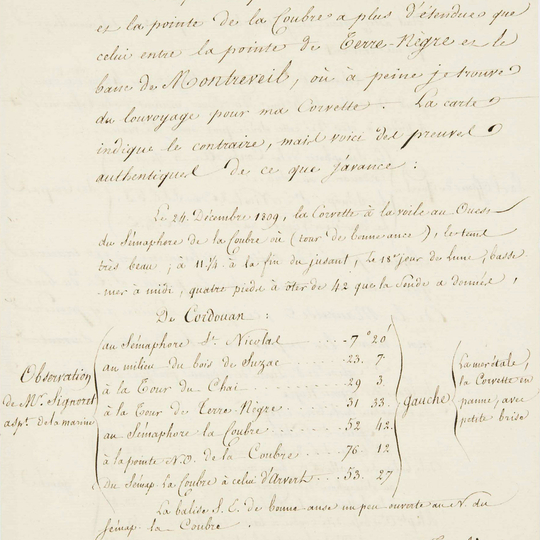 et la pointe de la Coubre a plus d'étendue que
celui entre la pointe de Terre-Nègre et le
banc de Montreveil, où à peine je trouve
du louvoyage pour ma Corvette. La carte
indique le contraire, mais voici des preuves
authentiques de ce que j'avance :
Le 24 Décembre 1809, la Corvette à la voile au Ouest
du Sémaphore de la Coubre où (tour de bonne anse), le tems
très beau, à 11.¼ à la fin du jusant, le 18e jour de lune, basse
mer à midi, quatre pieds à ôter de 42 que la sonde a donnés,
De Cordouan :
au Sémaphore St. Nicolas .... 7° 20'
au milieu du bois de Suzac .... 23. 7.
à la Tour du Chai .... 29 3.
à la Tour de Terre-Nègre .... 31 33.
au Sémaphore la Coubre .... 52 42.
à la pointe N.O. de la Coubre .... 76. 12
du Sémap. la Coubre à celui d'Arvert .... 53. 27
Observation
de Mr. Signoret
aspt. de la marine
gauche
La mer étale,
la Corvette en
panne, avec
petite brise
La balise S.E. de bonne anse un peu ouverte au N. du
Sémap. la Coubre.